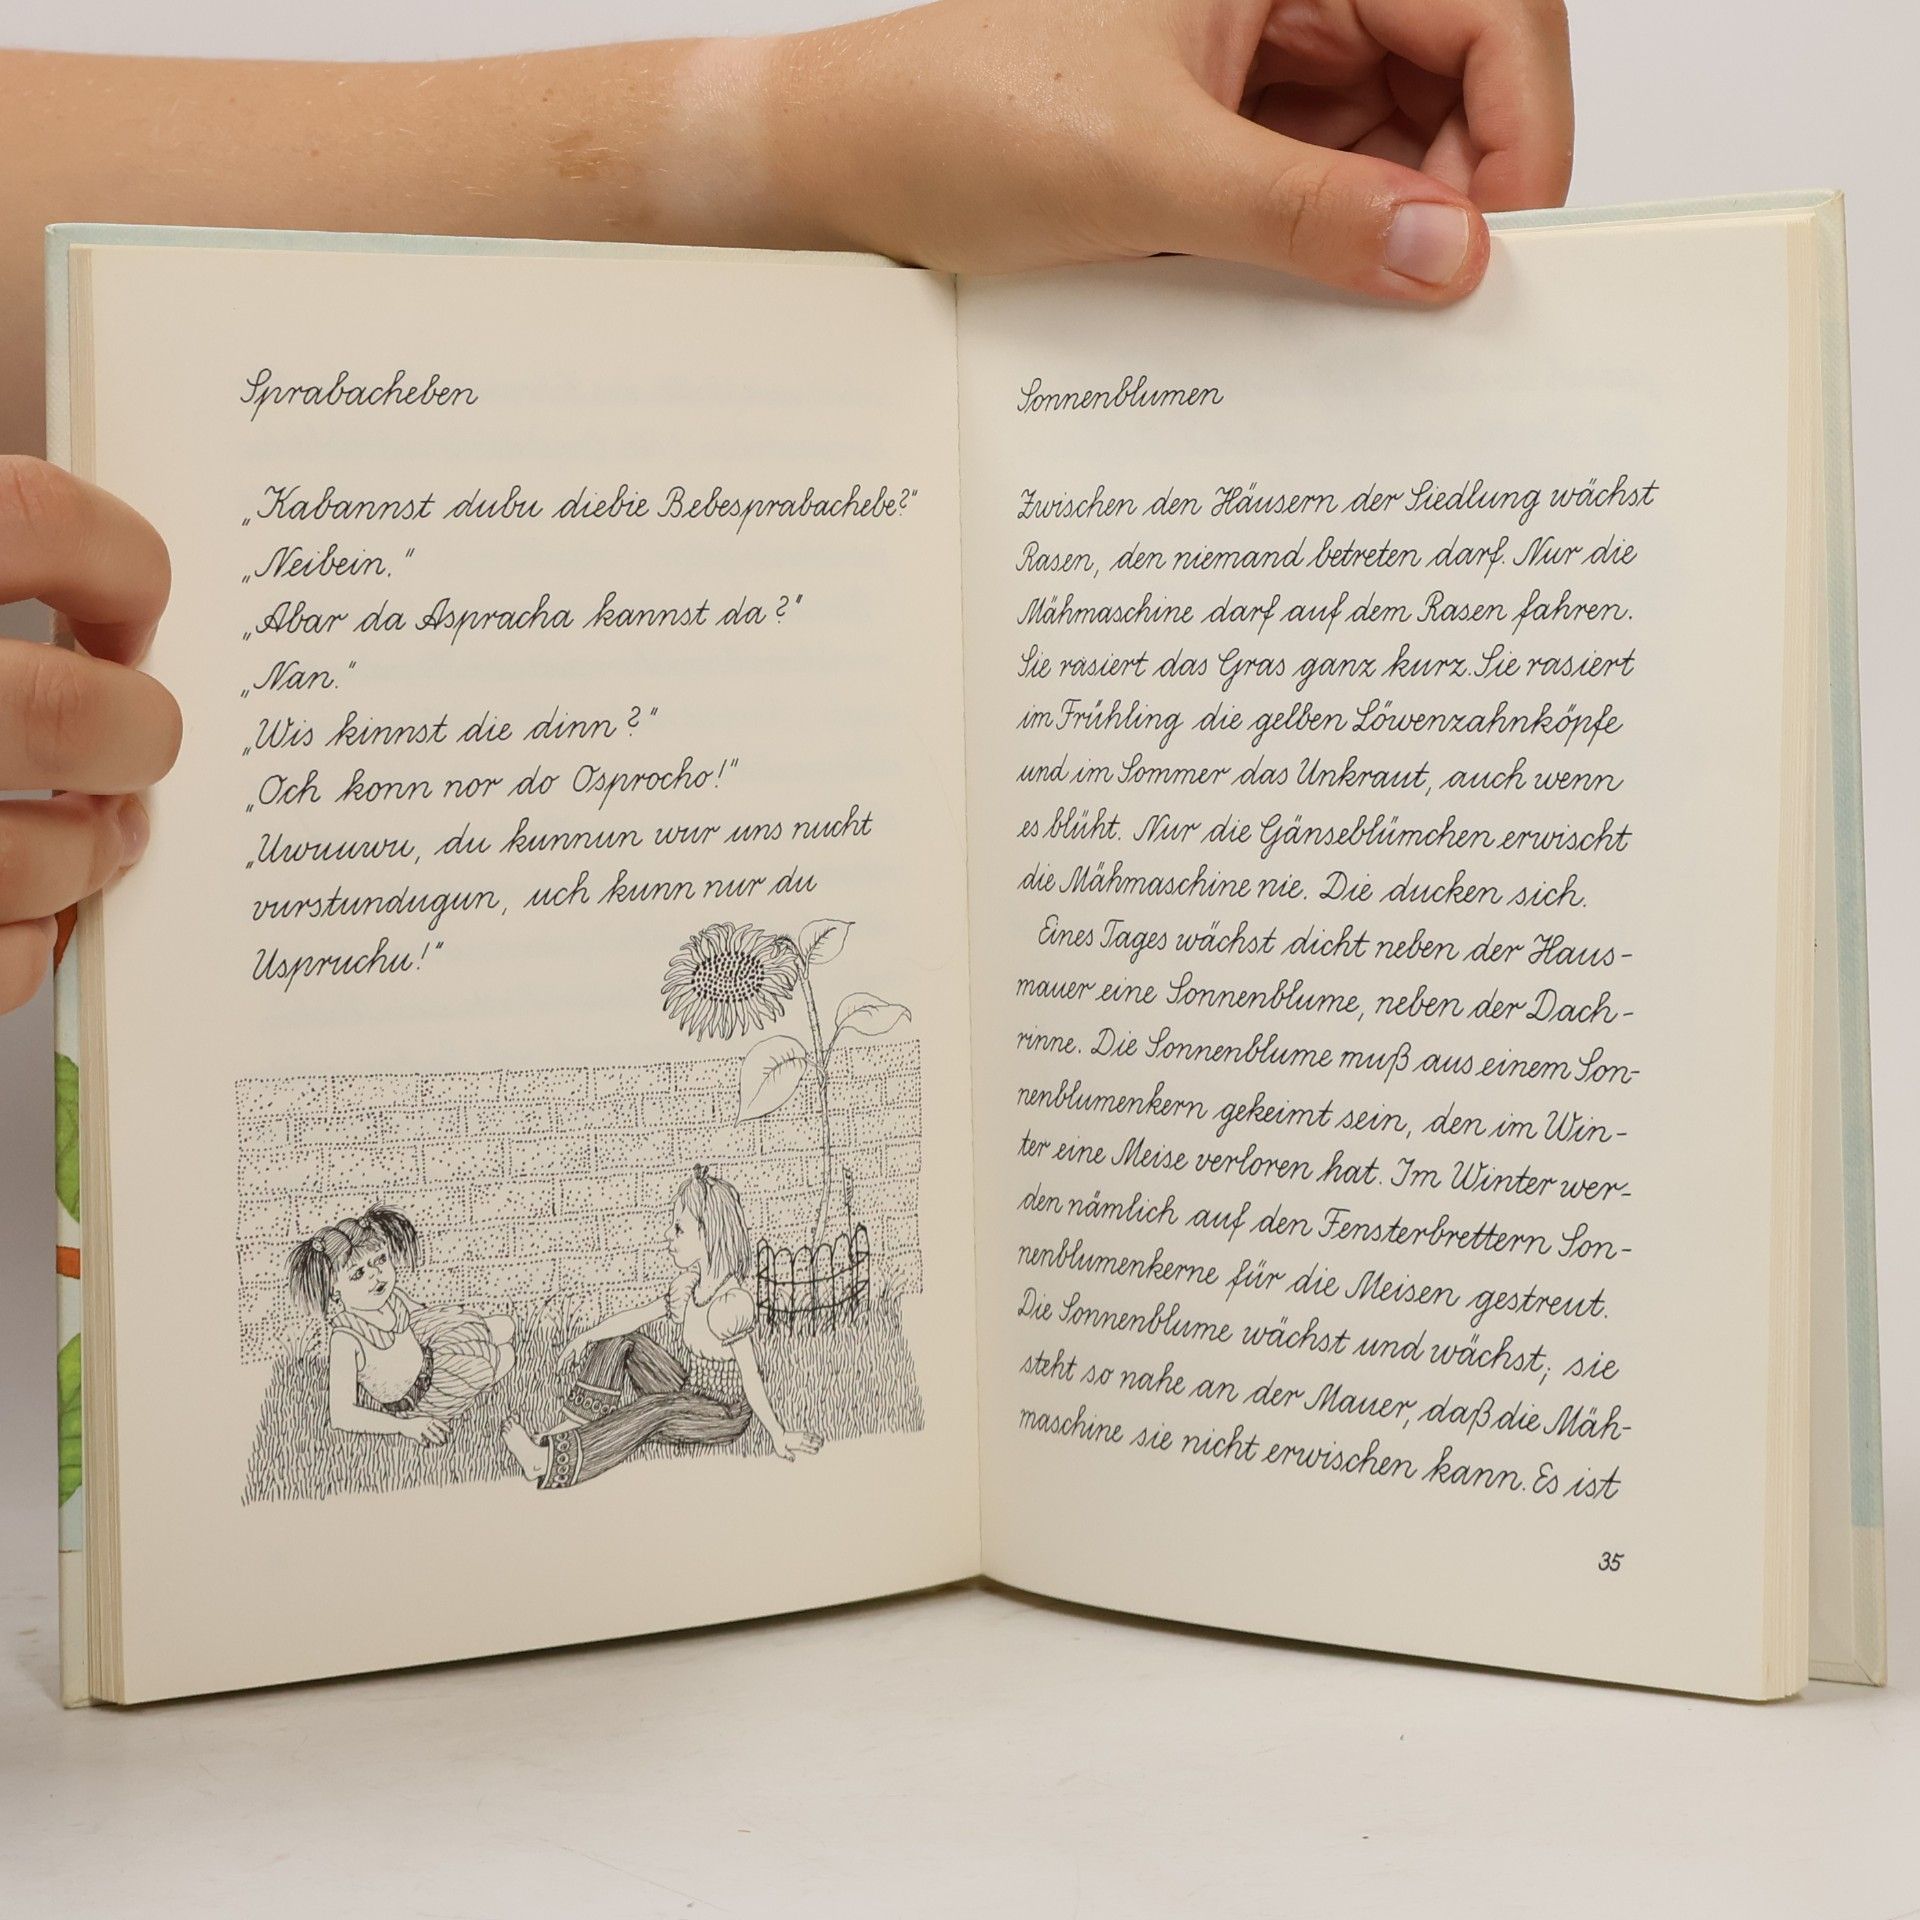 Sprabacheben
„Kabannst dubu diebie Bebesprabachebe?"
„Neibein."
„Abar da Aspracha kannst da?"
„Nan."
„Wis kinnst die dinn?"
„Och konn nor do Osprocho!"
„Uwuuwu, du kunnun wur uns nucht
vurstundugun, uch kunn nur du
Uspruchu!"
Sonnenblumen
Zwischen den Häusern der Siedlung wächst
Rasen, den niemand betreten darf. Nur die
Mähmaschine darf auf dem Rasen fahren.
Sie rasiert das Gras ganz kurz. Sie rasiert
im Frühling die gelben Löwenzahnköpfe
und im Sommer das Unkraut, auch wenn
es blüht. Nur die Gänseblümchen erwischt
die Mähmaschine nie. Die ducken sich.
Eines Tages wächst dicht neben der Haus-
mauer eine Sonnenblume, neben der Dach-
rinne. Die Sonnenblume muß aus einem Son-
nenblumenkern gekeimt sein, den im Win-
ter eine Meise verloren hat. Im Winter wer-
den nämlich auf den Fensterbrettern Son-
nenblumenkerne für die Meisen gestreut.
Die Sonnenblume wächst und wächst; sie
steht so nahe an der Mauer, daß die Mäh-
maschine sie nicht erwischen kann. Es ist
35